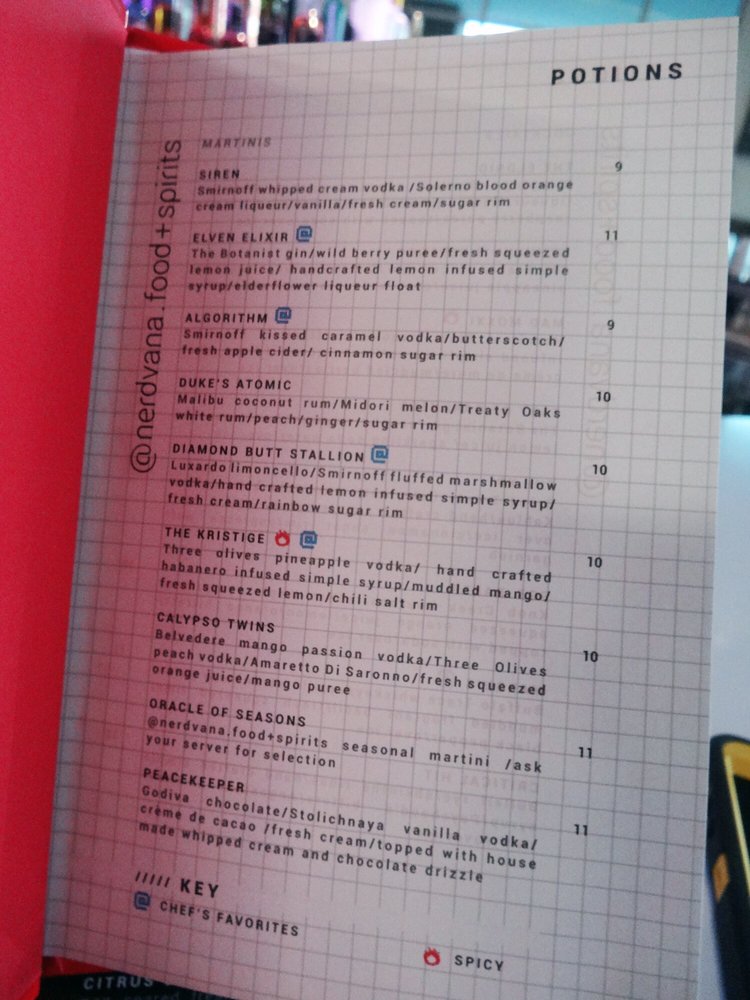 POTIONS
@nerdvana.food+spirits
MARTINIS
SIREN 9
Smirnoff whipped cream vodka /Solerno blood orange
cream liqueur/vanilla/fresh cream/sugar rim
ELVEN ELIXIR @ 11
The Botanist gin/wild berry puree/fresh squeezed
lemon juice/ handcrafted lemon infused simple
syrup/elderflower liqueur float
ALGORITHM @ 9
Smirnoff kissed caramel vodka/butterscotch/
fresh apple cider/ cinnamon sugar rim
DUKE'S ATOMIC 10
Malibu coconut rum/Midori melon/Treaty Oaks
white rum/peach/ginger/sugar rim
DIAMOND BUTT STALLION @ 10
Luxardo limoncello/Smirnoff fluffed marshmallow
vodka/hand crafted lemon infused simple syrup/
fresh cream/rainbow sugar rim
THE KRISTIGE @ 10
Three olives pineapple vodka/ hand crafted
habanero infused simple syrup/muddled mango/
fresh squeezed lemon/chili salt rim
CALYPSO TWINS 10
Belvedere mango passion vodka/Three Olives
peach vodka/Amaretto Di Saronno/fresh squeezed
orange juice/mango puree
ORACLE OF SEASONS 11
@nerdvana.food+spirits seasonal martini /ask
your server for selection
PEACEKEEPER 11
Godiva chocolate/Stolichnaya vanilla vodka/
crème de cacao /fresh cream/topped with house
made whipped cream and chocolate drizzle
///// KEY
@ CHEF'S FAVORITES
SPICY
CITRUS